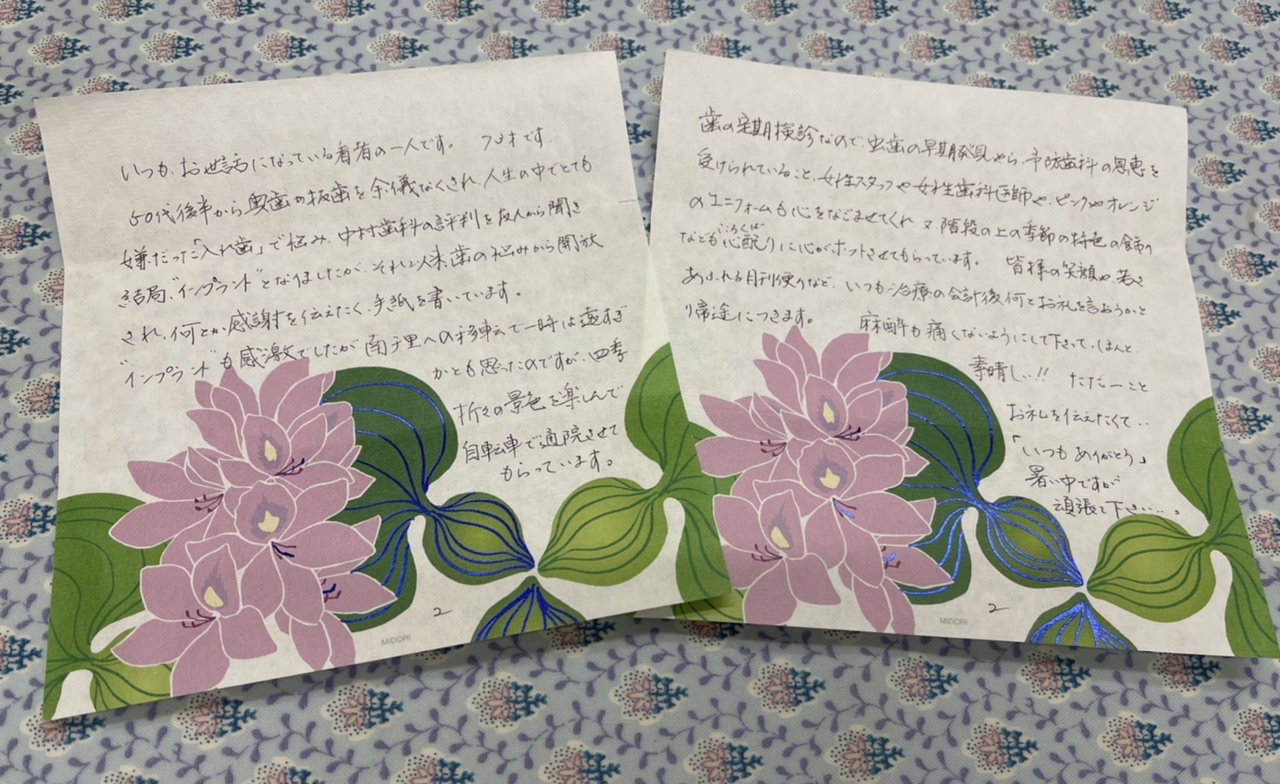 いつも、お世話になっている患者の一人です。 72才です.
50代後半から奥歯の抜歯を余儀なくされ、人生の中でとても
嫌だった「入れ歯」で悩み、中村歯科の評判を友人から聞き
結局、"インプラント"となりましたが、それ以来、歯の悩みから開放
され、何とか感謝を伝えたく、手紙を書いています。
"インプラント"も感激でしたが、南十里への移転で一時は遠すぎ
かとも思ったのですが、四季
折々の景色を楽しんで
自転車で通院させて
もらっています。
2
MIDORI
歯の定期検診なので、虫歯の早期発見やら、予防歯科の恩恵を
受けられていること、女性スタッフや女性歯科医師や、ピンクやオレンジ
のユニフォームも心をなごませてくれ 又、階段の上の季節の特色の飾り
なども心配りに心がホットさせてもらっています。 皆様の笑顔や、若さ
こころくば
あふれる月刊便りなど、いつも治療の会計後何とお礼を言おうかと
り帰途につきます。 麻酔も痛くないようにして下さって、ほんと、
素晴しい!! ただ一こと
お礼を伝えたくて..
「いつもありがとう」
暑い中ですが
頑張て下さい...。
2
MIDORI